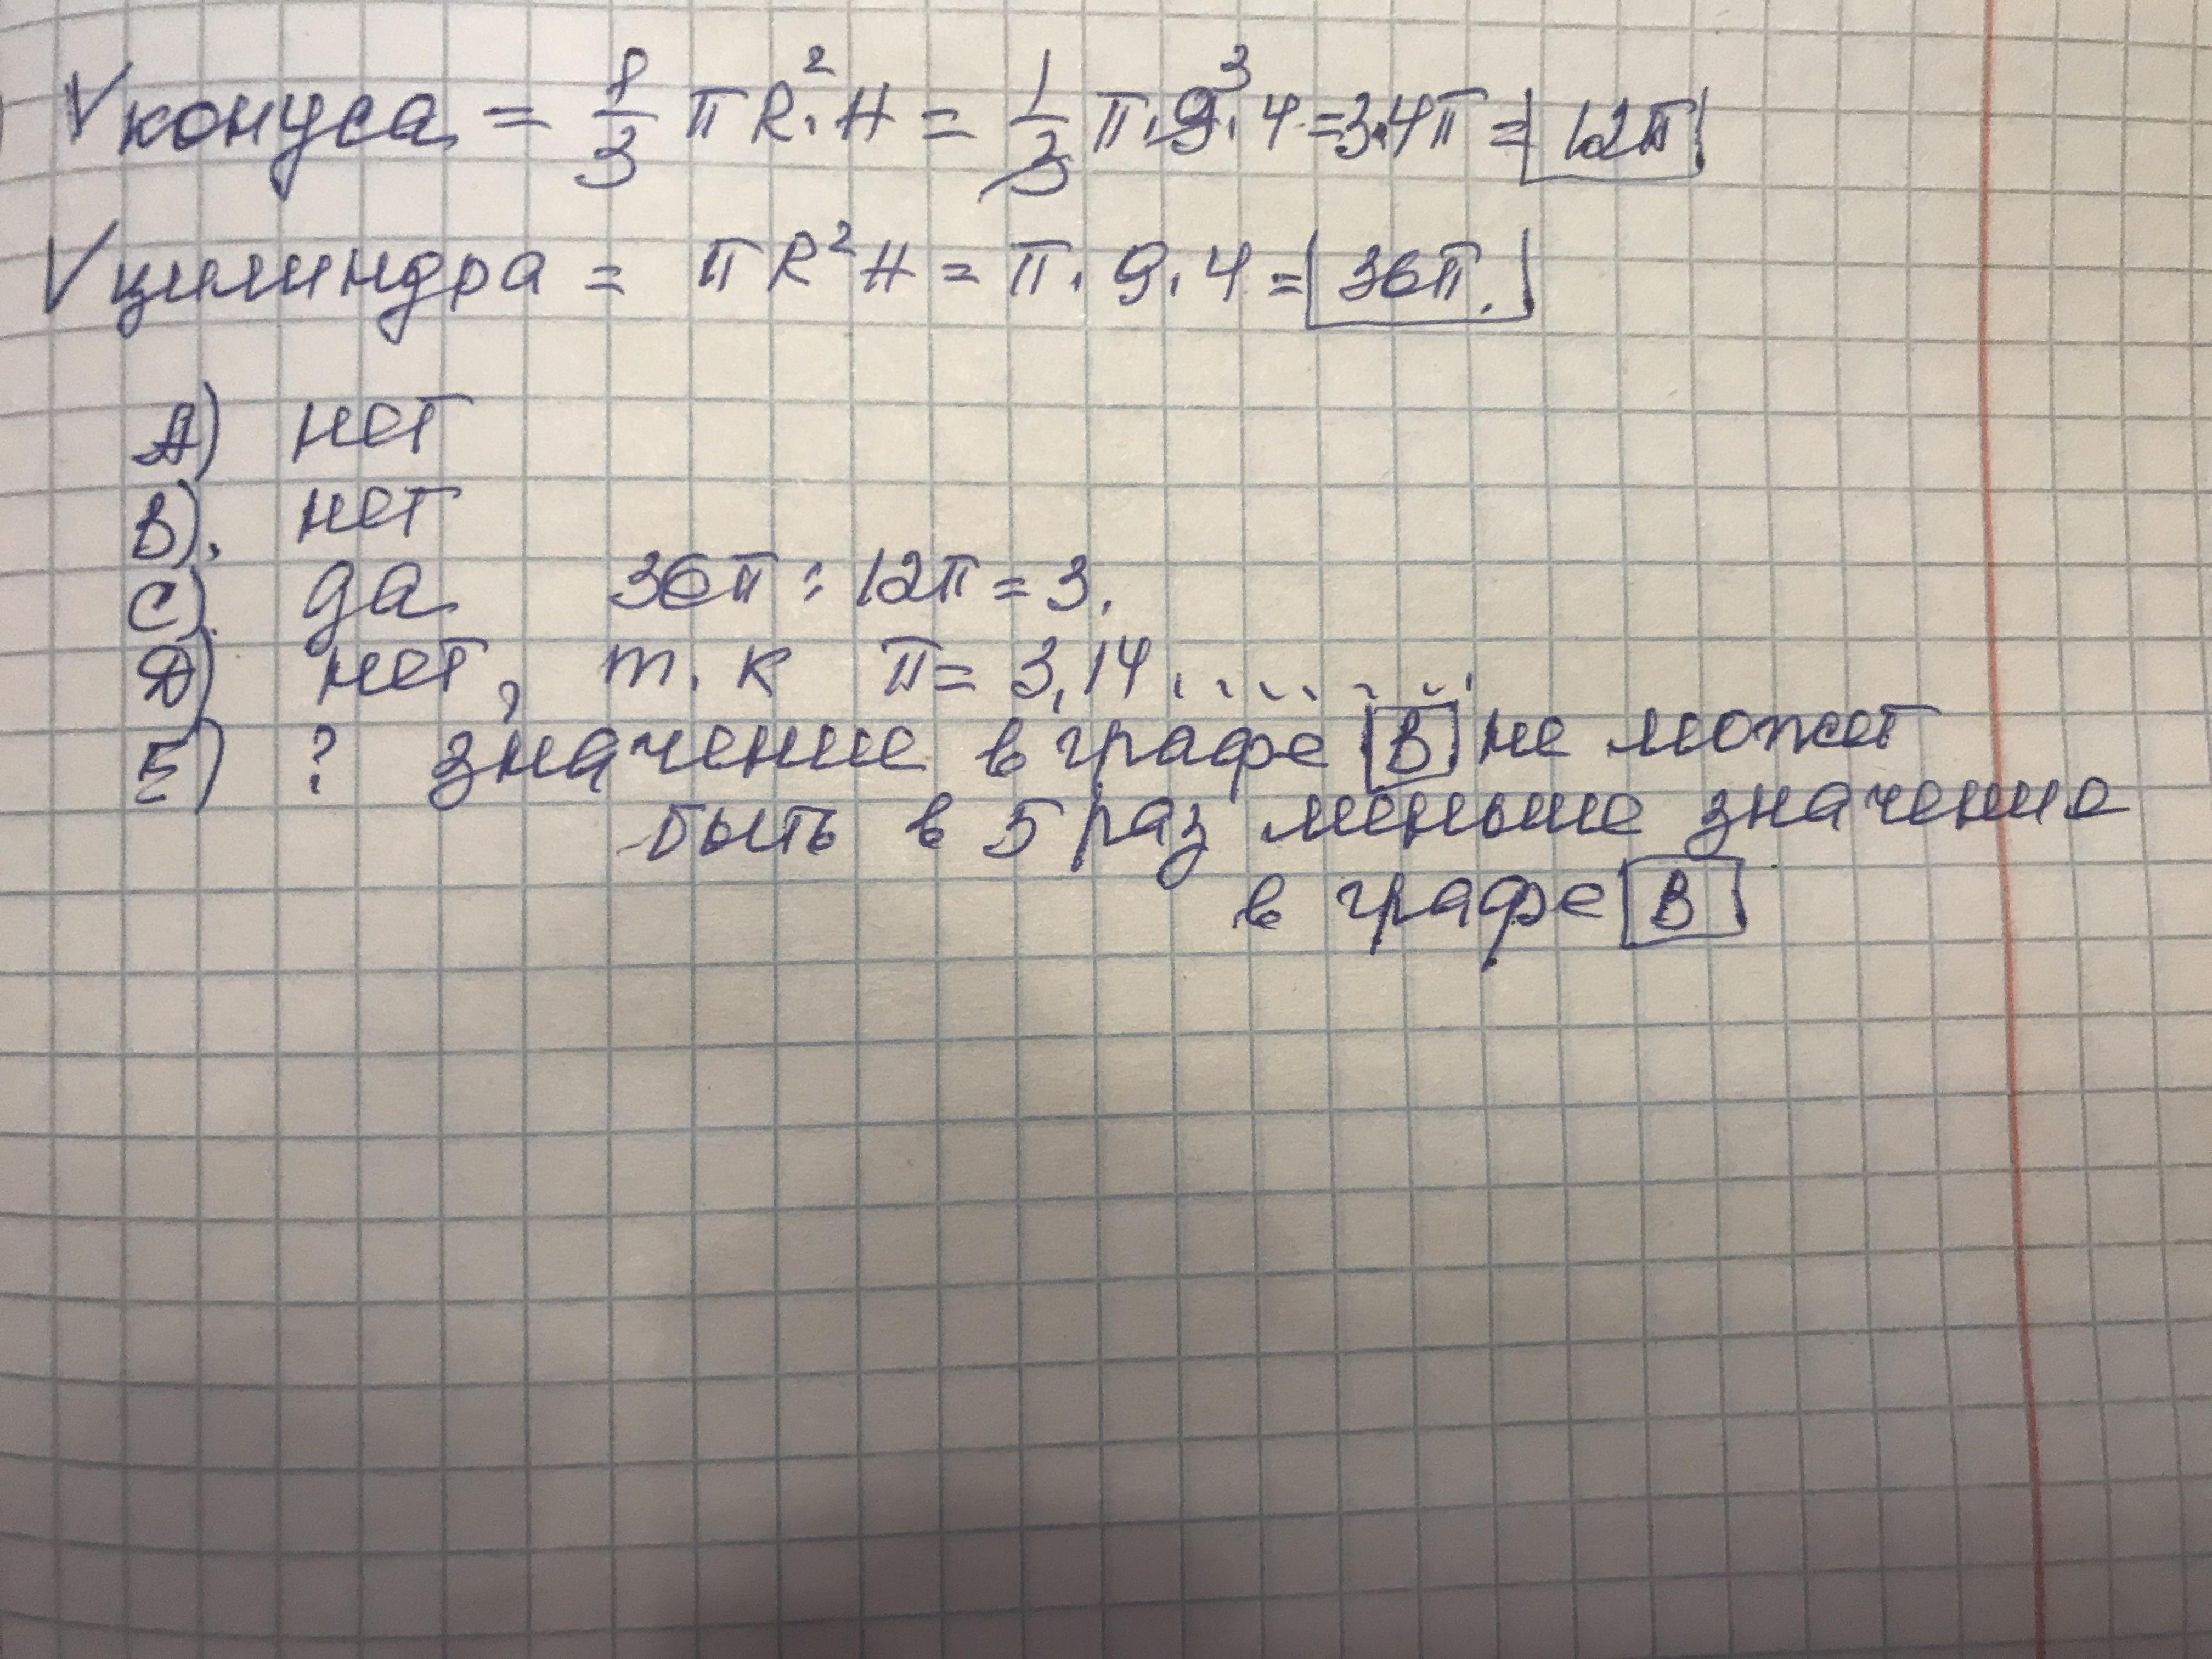 V конуса = 1/3 π R²·H = 1/3 π·9³·4 = 3·4π = 12π
V цилиндра = π R² H = π · 9 · 4 = 36π.
A) нет
B). нет
C) да 36π : 12π = 3.
D) нет, т. к π = 3,14.......
E) ? значение в графе B не может
быть в 5 раз меньше значение
в графе B